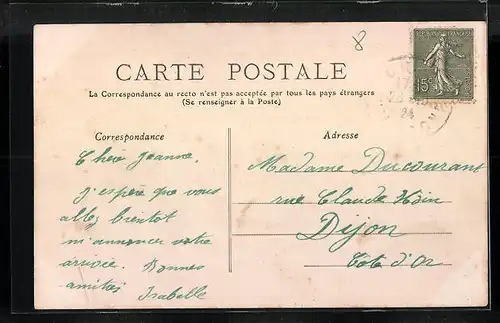 8
REPUBLIQUE FRANÇAISE
15c
17
24
CARTE POSTALE
La Correspondance au recto n'est pas acceptée par tous les pays étrangers
(Se renseigner à la Poste)
Correspondance
Chère Jeanne,
j'espère que vous
allez bientôt
m'annoncer votre
arrivée. Bonnes
amitiés
Isabelle
Adresse
Madame Ducourant
rue Claude
Dijon
Côte d'Or